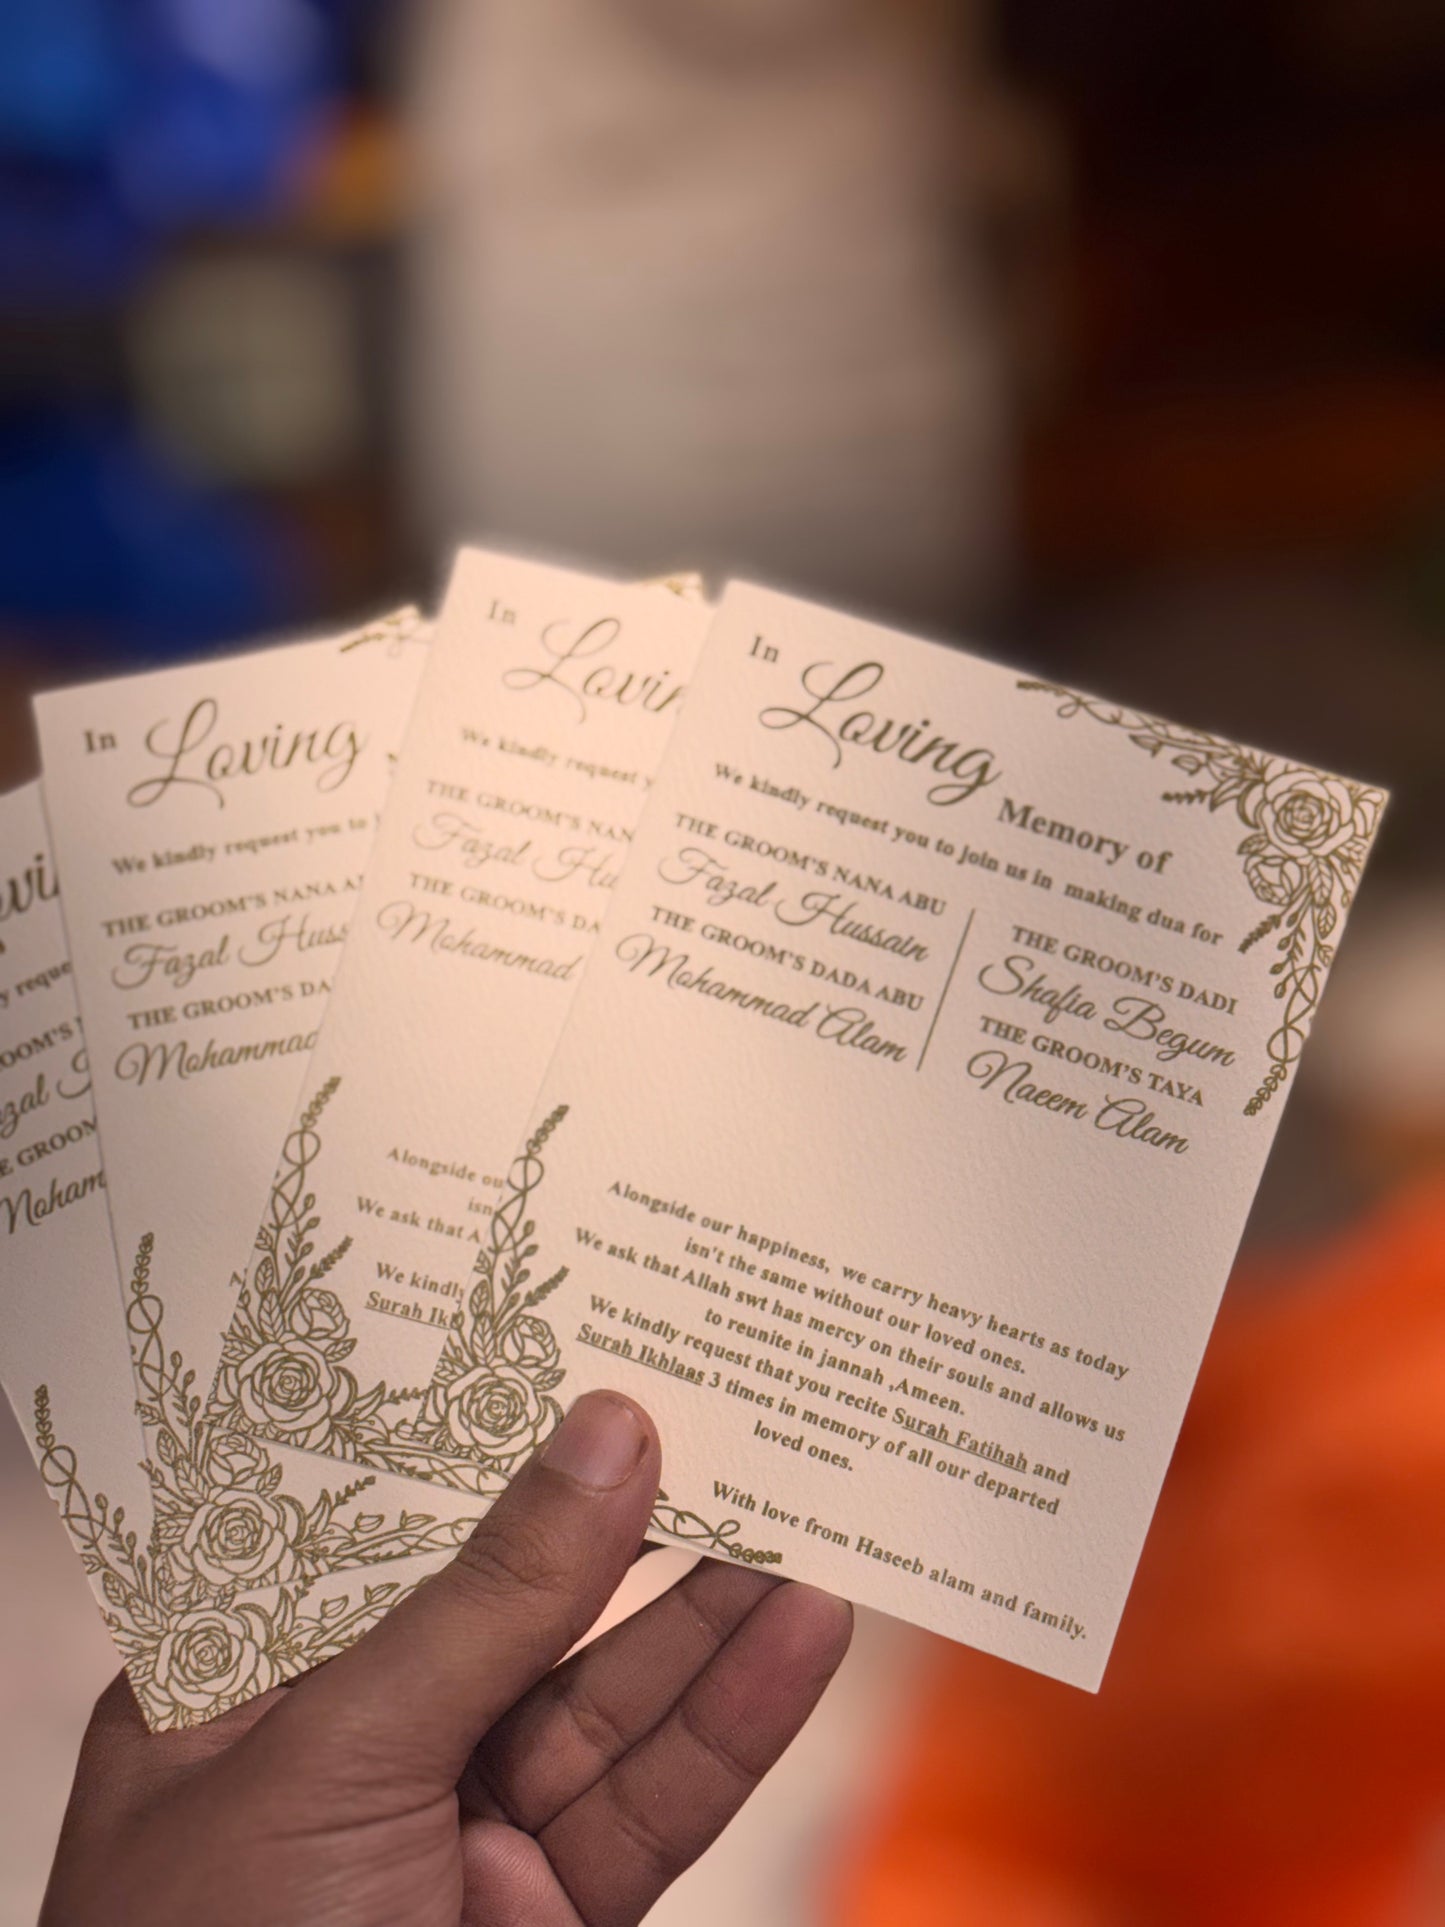 In Loving Memory of
We kindly request you to join us in making dua for
THE GROOM'S NANA ABU
Fazal Hussain
THE GROOM'S DADA ABU
Mohammad Alam
THE GROOM'S DADI
Shafia Begum
THE GROOM'S TAYA
Naeem Alam
Alongside our happiness, we carry heavy hearts as today
isn't the same without our loved ones.
We ask that Allah swt has mercy on their souls and allows us
to reunite in jannah ,Ameen.
We kindly request that you recite Surah Fatihah and
Surah Ikhlaas 3 times in memory of all our departed
loved ones.
With love from Haseeb alam and family.
In Loving
We kindly request y
THE GROOM'S NAN
Fazal Hu
THE GROOM'S DA
Mohammad
Alongside ou
isn'
We ask that A
We kindly
Surah Ik
In Loving
We kindly request you to
THE GROOM'S NANA A
Fazal Huss
THE GROOM'S DA
Mohammad
A
vi
y reque
OOM'S
zal
E GROOM
Moham